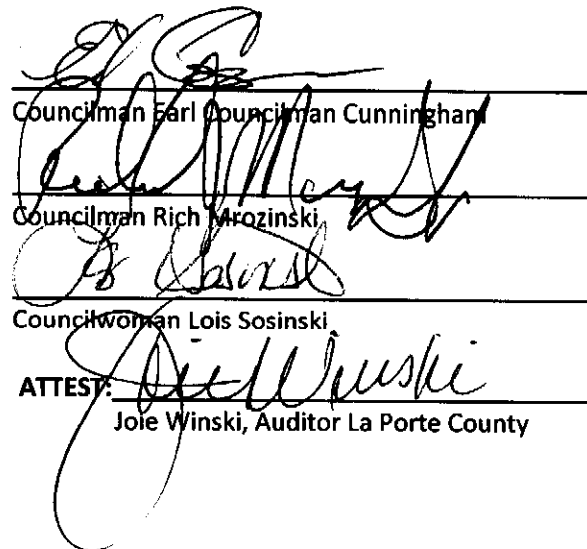 Councilman Earl Councilman Cunningham
Councilman Rich Mrozinski
Councilwoman Lois Sosinski
ATTEST: Joie Winski
Joie Winski, Auditor La Porte County